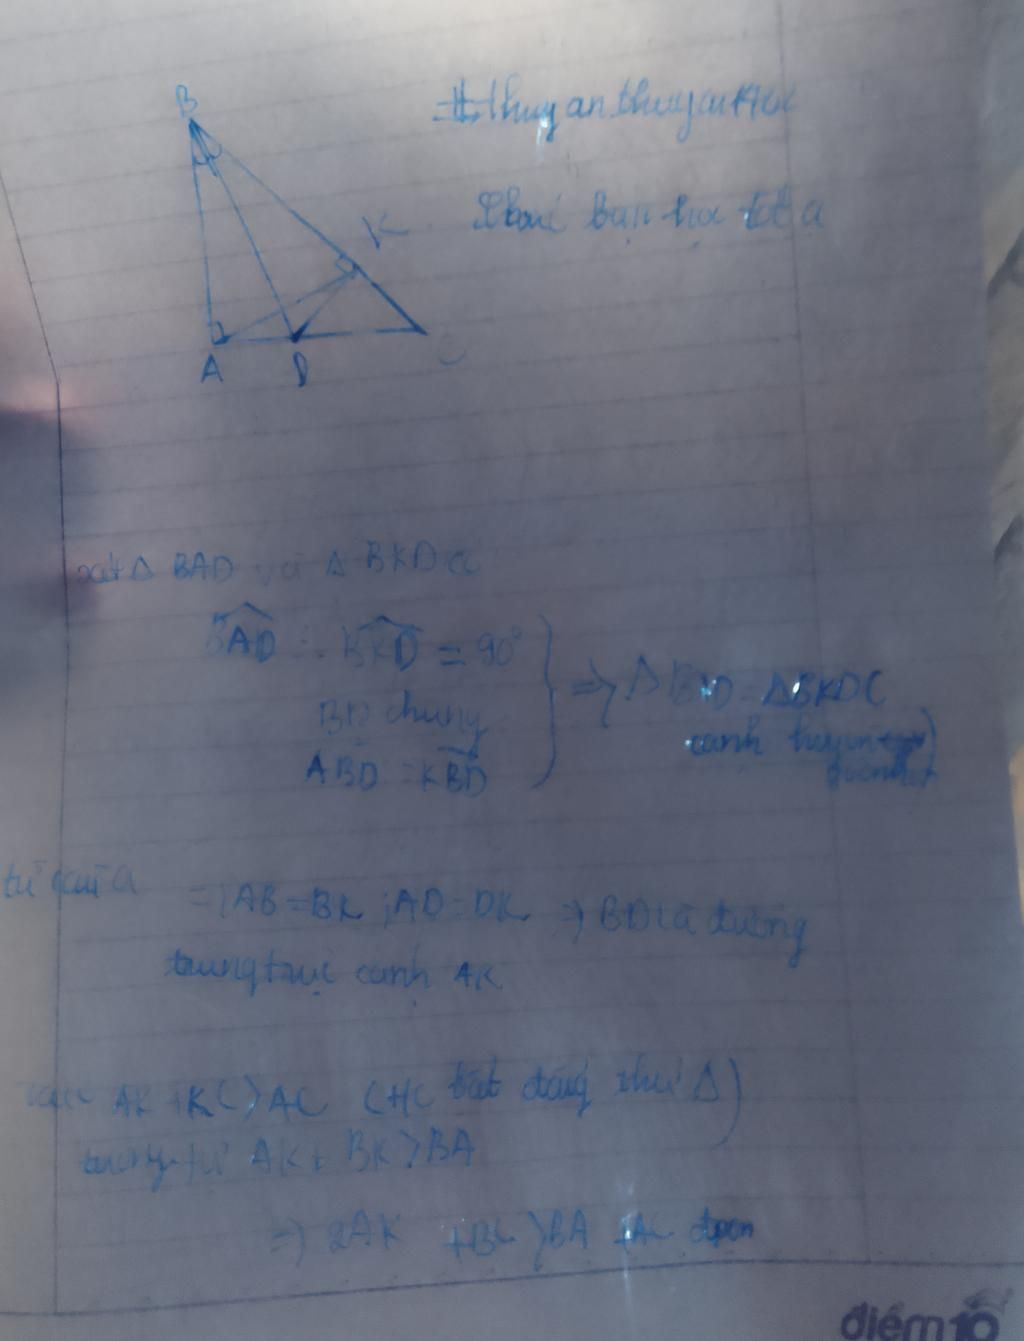 B
Chúc bạn học tốt ạ
K
A D C
xét Δ BAD và Δ BKD có
BAD = BKD = 90°
BD chung
ABD = KBD
=> Δ BAD = Δ BKD (
cạnh huyền
từ câu a
=> AB = BK ; AD = DK => BD là đường
trung trực cạnh AK
AK + KC > AC ( bất đẳng thức Δ )
tương tự AK + BK > BA
=> 2AK + BC > BA + AC đpcm
điểm 10